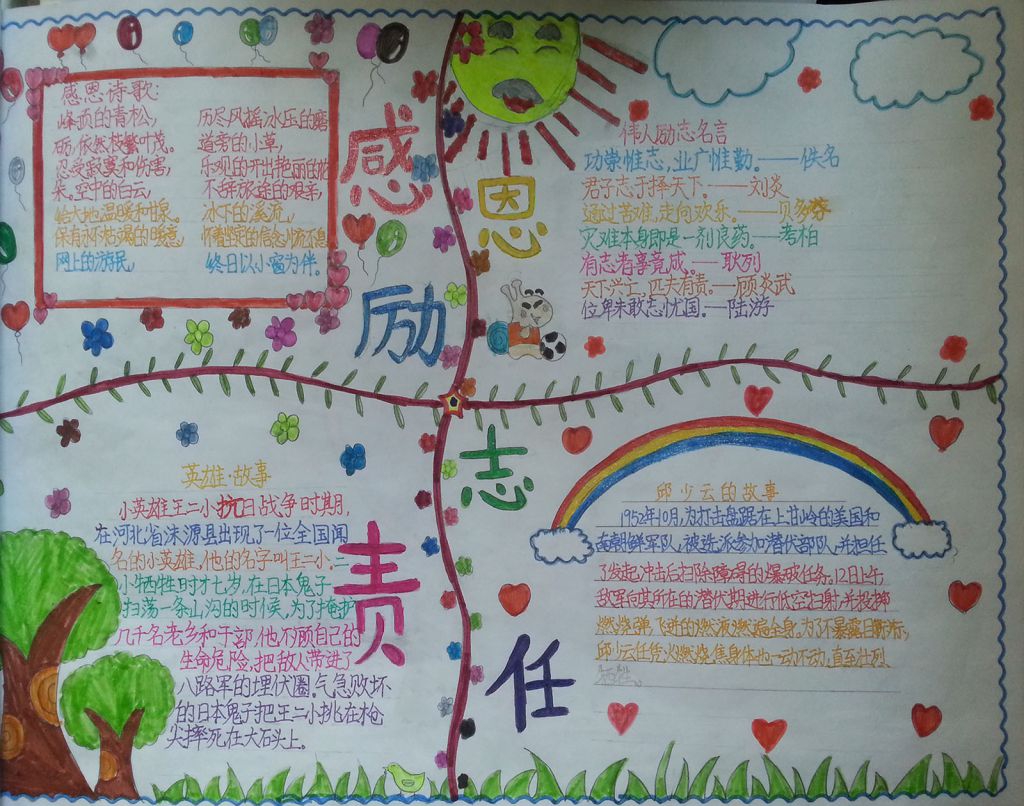 感恩励志责任
感恩诗歌:
峰顶的青松,
历尽风摇冰乐的磨
砺,依然枝繁叶茂。
道旁的小草,
忍受寂寞和伤害,
乐观的开出艳丽的花
朵。空中的白云,
不辞旅途的艰辛,
给大地温暖和甘泉。
冰下的溪流,
保有永不枯竭的暖意,
怀着坚定的信念川流不息
网上的游民,
终日以小窗为伴。
伟人励志名言
功崇惟志,业广惟勤。——佚名
君子志于择天下。——刘炎
通过苦难,走向欢乐。——贝多芬
灾难本身即是一剂良药。——考柏
有志者事竟成。——耿列
天下兴亡,匹夫有责。——顾炎武
位卑未敢忘忧国。——陆游
英雄·故事
小英雄王二小抗日战争时期,
在河北省涞源县出现了一位全国闻
名的小英雄,他的名字叫王二小.二
小牺牲时才七岁,在日本鬼子
扫荡一条山沟的时候,为了掩护
几千名老乡和干部,他不顾自己的
生命危险,把敌人带进了
八路军的埋伏圈。气急败坏
的日本鬼子把王二小挑在枪
尖摔死在大石头上。
邱少云的故事
1952年10月,为打击盘踞在上甘岭的美国和
南朝鲜军队,被选派参加潜伏部队,并担任
了发起冲击后扫除障碍的爆破任务。12日上午,
敌军向其所在的潜伏期进行低空扫射,并投掷
燃烧弹,飞迸的燃液燃遍全身,为了不暴露目标,
邱少云任凭火燃烧焦身体也一动不动,直至壮烈
牺牲。